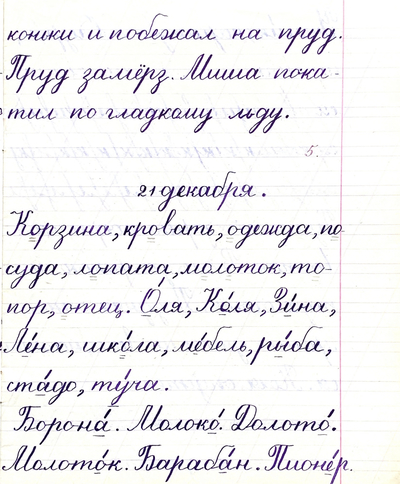 коньки и побежал на пруд.
Пруд замёрз. Миша пока-
тил по гладкому льду.
5.
21 декабря.
Корзина, кровать, одежда, по
суда, лопата, молоток, то-
пор, отец. О́ля, Ко́ля, Зи́на,
Ле́на, шко́ла, ме́бель, ры́ба,
ста́до, ту́ча.
Борона́. Молоко́. Долото́.
Молото́к. Бараба́н. Пионе́р.